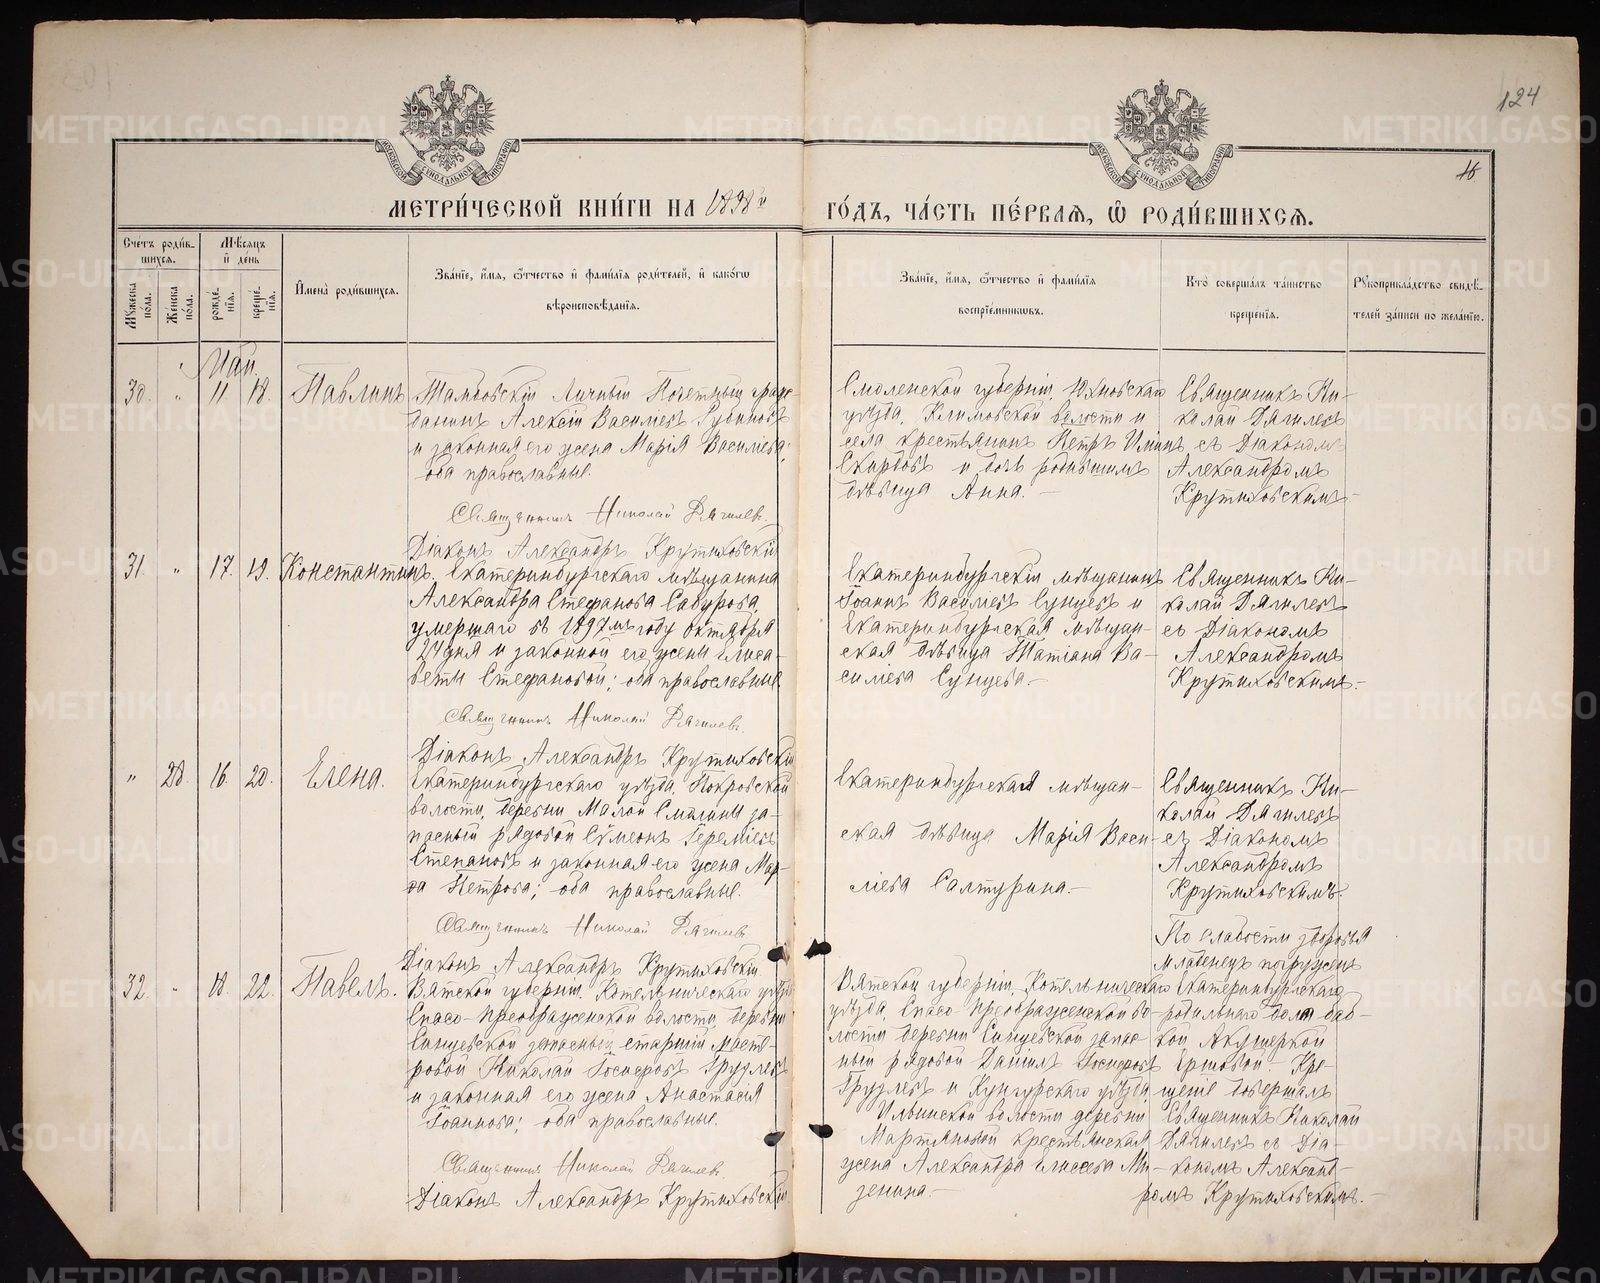 124
16
МОСКОВСКОЙ СѴНОДАЛЬНОЙ ТИПОГРАФІИ
МОСКОВСКОЙ СѴНОДАЛЬНОЙ ТИПОГРАФІИ
МЕТРИ́ЧЕСКОЙ КНИ́ГИ НА 1898й
ГО́ДЪ, ЧА́СТЬ ПЕ́РВАѦ, Ѡ҆ РОДИ́ВШИХСѦ.
Сче́тъ роди́в-
шихсѧ.
Мꙋ́жеска по́ла.
Же́нска по́ла.
Мѣ́сѧцъ и҆ де́нь
рожде́нїѧ.
креще́нїѧ.
И҆мена̀ роди́вшихсѧ.
Зва́нїе, и҆́мѧ, ѻ҆́тчество и҆ фами́лїѧ роди́телей, и҆ како́гѡ
вѣроисповѣ́данїѧ.
Зва́нїе, и҆́мѧ, ѻ҆́тчество и҆ фами́лїѧ
воспрїе́мникѡвъ.
Кто̀ соверша́лъ та́инство
креще́нїѧ.
Рꙋкоприкла́дство свидѣ́-
телей за́писи по жела́нїю.
Май.
30. " 11. 18. Павлинъ
Тамбовскій Личный Почетный граж-
данинъ Алексій Васильевъ
и законная его жена Марія Васильева;
оба православные.
Священникъ Николай Дягилевъ.
Діаконъ Александръ Крутиховскій
Смоленской губерніи, Юхновскаго
уѣзда, Климовской волости и
села крестьянинъ Петръ
и дочь родившимъ
дѣвица Анна.-
Священникъ Ни-
колай Дягилевъ
съ Діакономъ
Александромъ
Крутиховскимъ.-
31. " 17. 19. Константинъ.
Екатеринбургскаго мѣщанина
Александра Стефанова Сабурова,
умершаго въ 1897мъ году Октября
24 дня и законной его жены Елиса-
веты Стефановой; оба православные.
Священникъ Николай Дягилевъ.
Діаконъ Александръ Крутиховскій
Екатеринбургскій мѣщанинъ
Іоаннъ Васильевъ Сунцевъ и
Екатеринбургская мѣщан-
ская дѣвица Татіана Ва-
сильева Сунцева.-
Священникъ Ни-
колай Дягилевъ
съ Діакономъ
Александромъ
Крутиховскимъ.-
" 28. 16. 20. Елена.
Екатеринбургскаго уѣзда, Покровской
волости, деревни Малой Смолины за-
пасный рядовой Сѵмеонъ Іереміевъ
Степановъ и законная его жена Мар-
ѳа Петрова; оба православные.
Священникъ Николай Дягилевъ
Діаконъ Александръ Крутиховскій
Екатеринбургская мѣщан-
ская дѣвица Марія Васи-
льева Салтурина.-
Священникъ Ни-
колай Дягилевъ
съ Діакономъ
Александромъ
Крутиховскимъ.
32. " 18. 22. Павелъ.
Вятской губерніи, Котельническаго уѣзда
Спасо-Преображенской волости, деревни
Синцевской запасный старшій масте-
ровой Николай Іосифовъ Груздевъ
и законная его жена Анастасія
Іоаннова; оба православные.
Священникъ Николай Дягилевъ
Діаконъ Александръ Крутиховскій
Вятской губерніи, Котельническаго
уѣзда, Спасо-Преображенской во-
лости деревни Синцевской запас-
ный рядовой Даніилъ Іосифовъ
Груздевъ и Кунгурскаго уѣзда,
Ильинской волости деревни
Мартяновой крестьянская
жена Александра Елисеева Ми-
зенина.-
По слабости здоровья
младенецъ погруженъ
Екатеринбургскаго
родильнаго дома баб-
кой Акушеркой
Ершовой. Кре-
щеніе совершалъ
Священникъ Николай
Дягилевъ съ Діа-
кономъ Александ-
ромъ Крутиховскимъ.-
METRIKI.GASO-URAL.RU